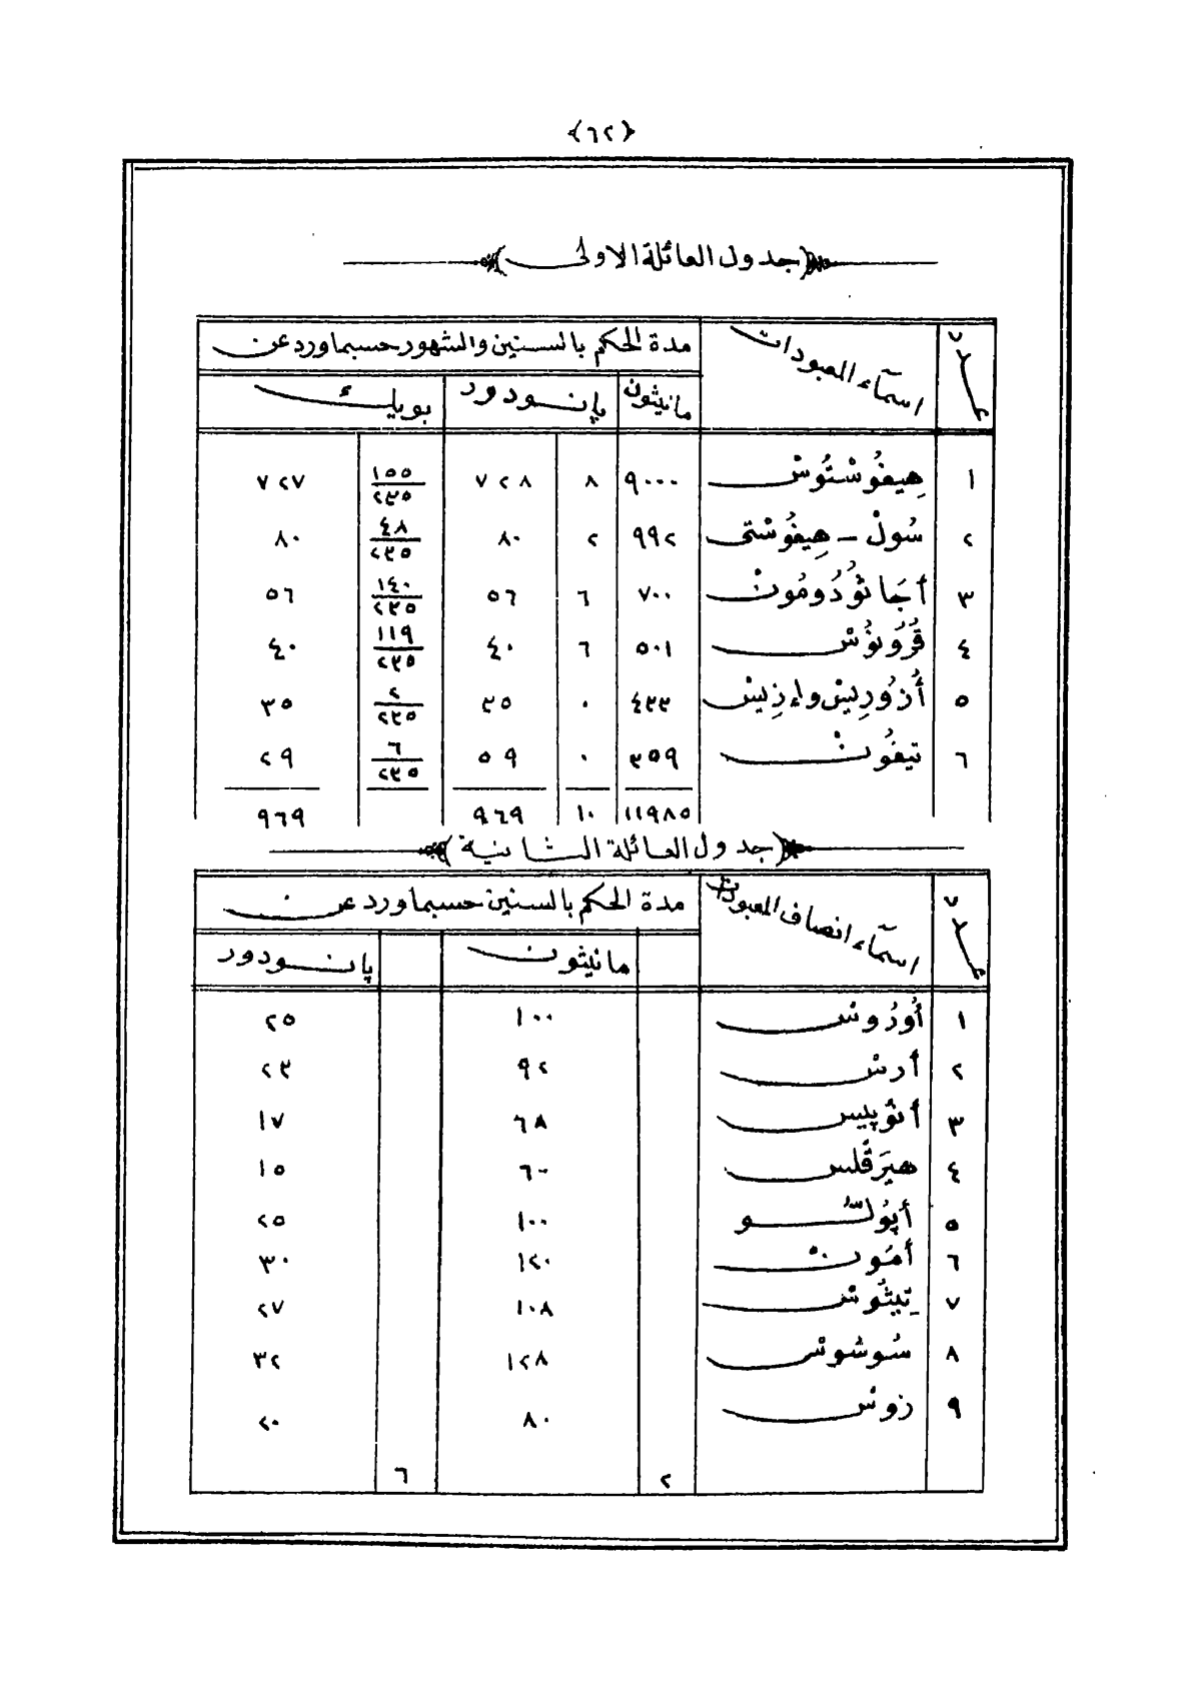 ﴿٦٢﴾
﴿جدول العائلة الاولى﴾
عدد اسمآء المعبودات مدة الحكم بالسنين والشهور حسبما ورد عن
مانيثون پانودور بويك
١ هِيفُوسْتُوسْ ٩٠٠٠ ٨ ٧٢٨ ١٥٥/٢٣٥ ٧٢٧
٢ سُولْ - هِيفُوسْتى ٩٩٢ ٢ ٨٠ ٤٨/٢٣٥ ٨٠
٣ أجَاثُودُومُونْ ٧٠٠ ٦ ٥٦ ١٤٠/٢٣٥ ٥٦
٤ قُرُونُوسْ ٥٠١ ٦ ٤٠ ١١٩/٢٣٥ ٤٠
٥ أُزُورِيسْ واِزِيسْ ٤٣٣ ٠ ٣٥ ٢/٢٣٥ ٣٥
٦ تيفُونْ ٣٥٩ ٠ ٥٩ ٦/٢٣٥ ٢٩
١١٩٨٥ ١٠ ٩٦٩ ٩٦٩
﴿جدول العائلة الثانية﴾
عدد اسمآء انصاف المعبودات مدة الحكم بالسنين حسبما ورد عن
مانيثون پانودور
١ أُورُوسْ ١٠٠ ٢٥
٢ أرسْ ٩٢ ٢٣
٣ أنُوپيس ٦٨ ١٧
٤ هيَرَقْلس ٦٠ ١٥
٥ أپُولّو ١٠٠ ٢٥
٦ أمُونْ ١٢٠ ٣٠
٧ تِيثُوسْ ١٠٨ ٢٧
٨ سُوسُوسْ ١٢٨ ٣٢
٩ زوسْ ٨٠ ٢٠
٢ ٦